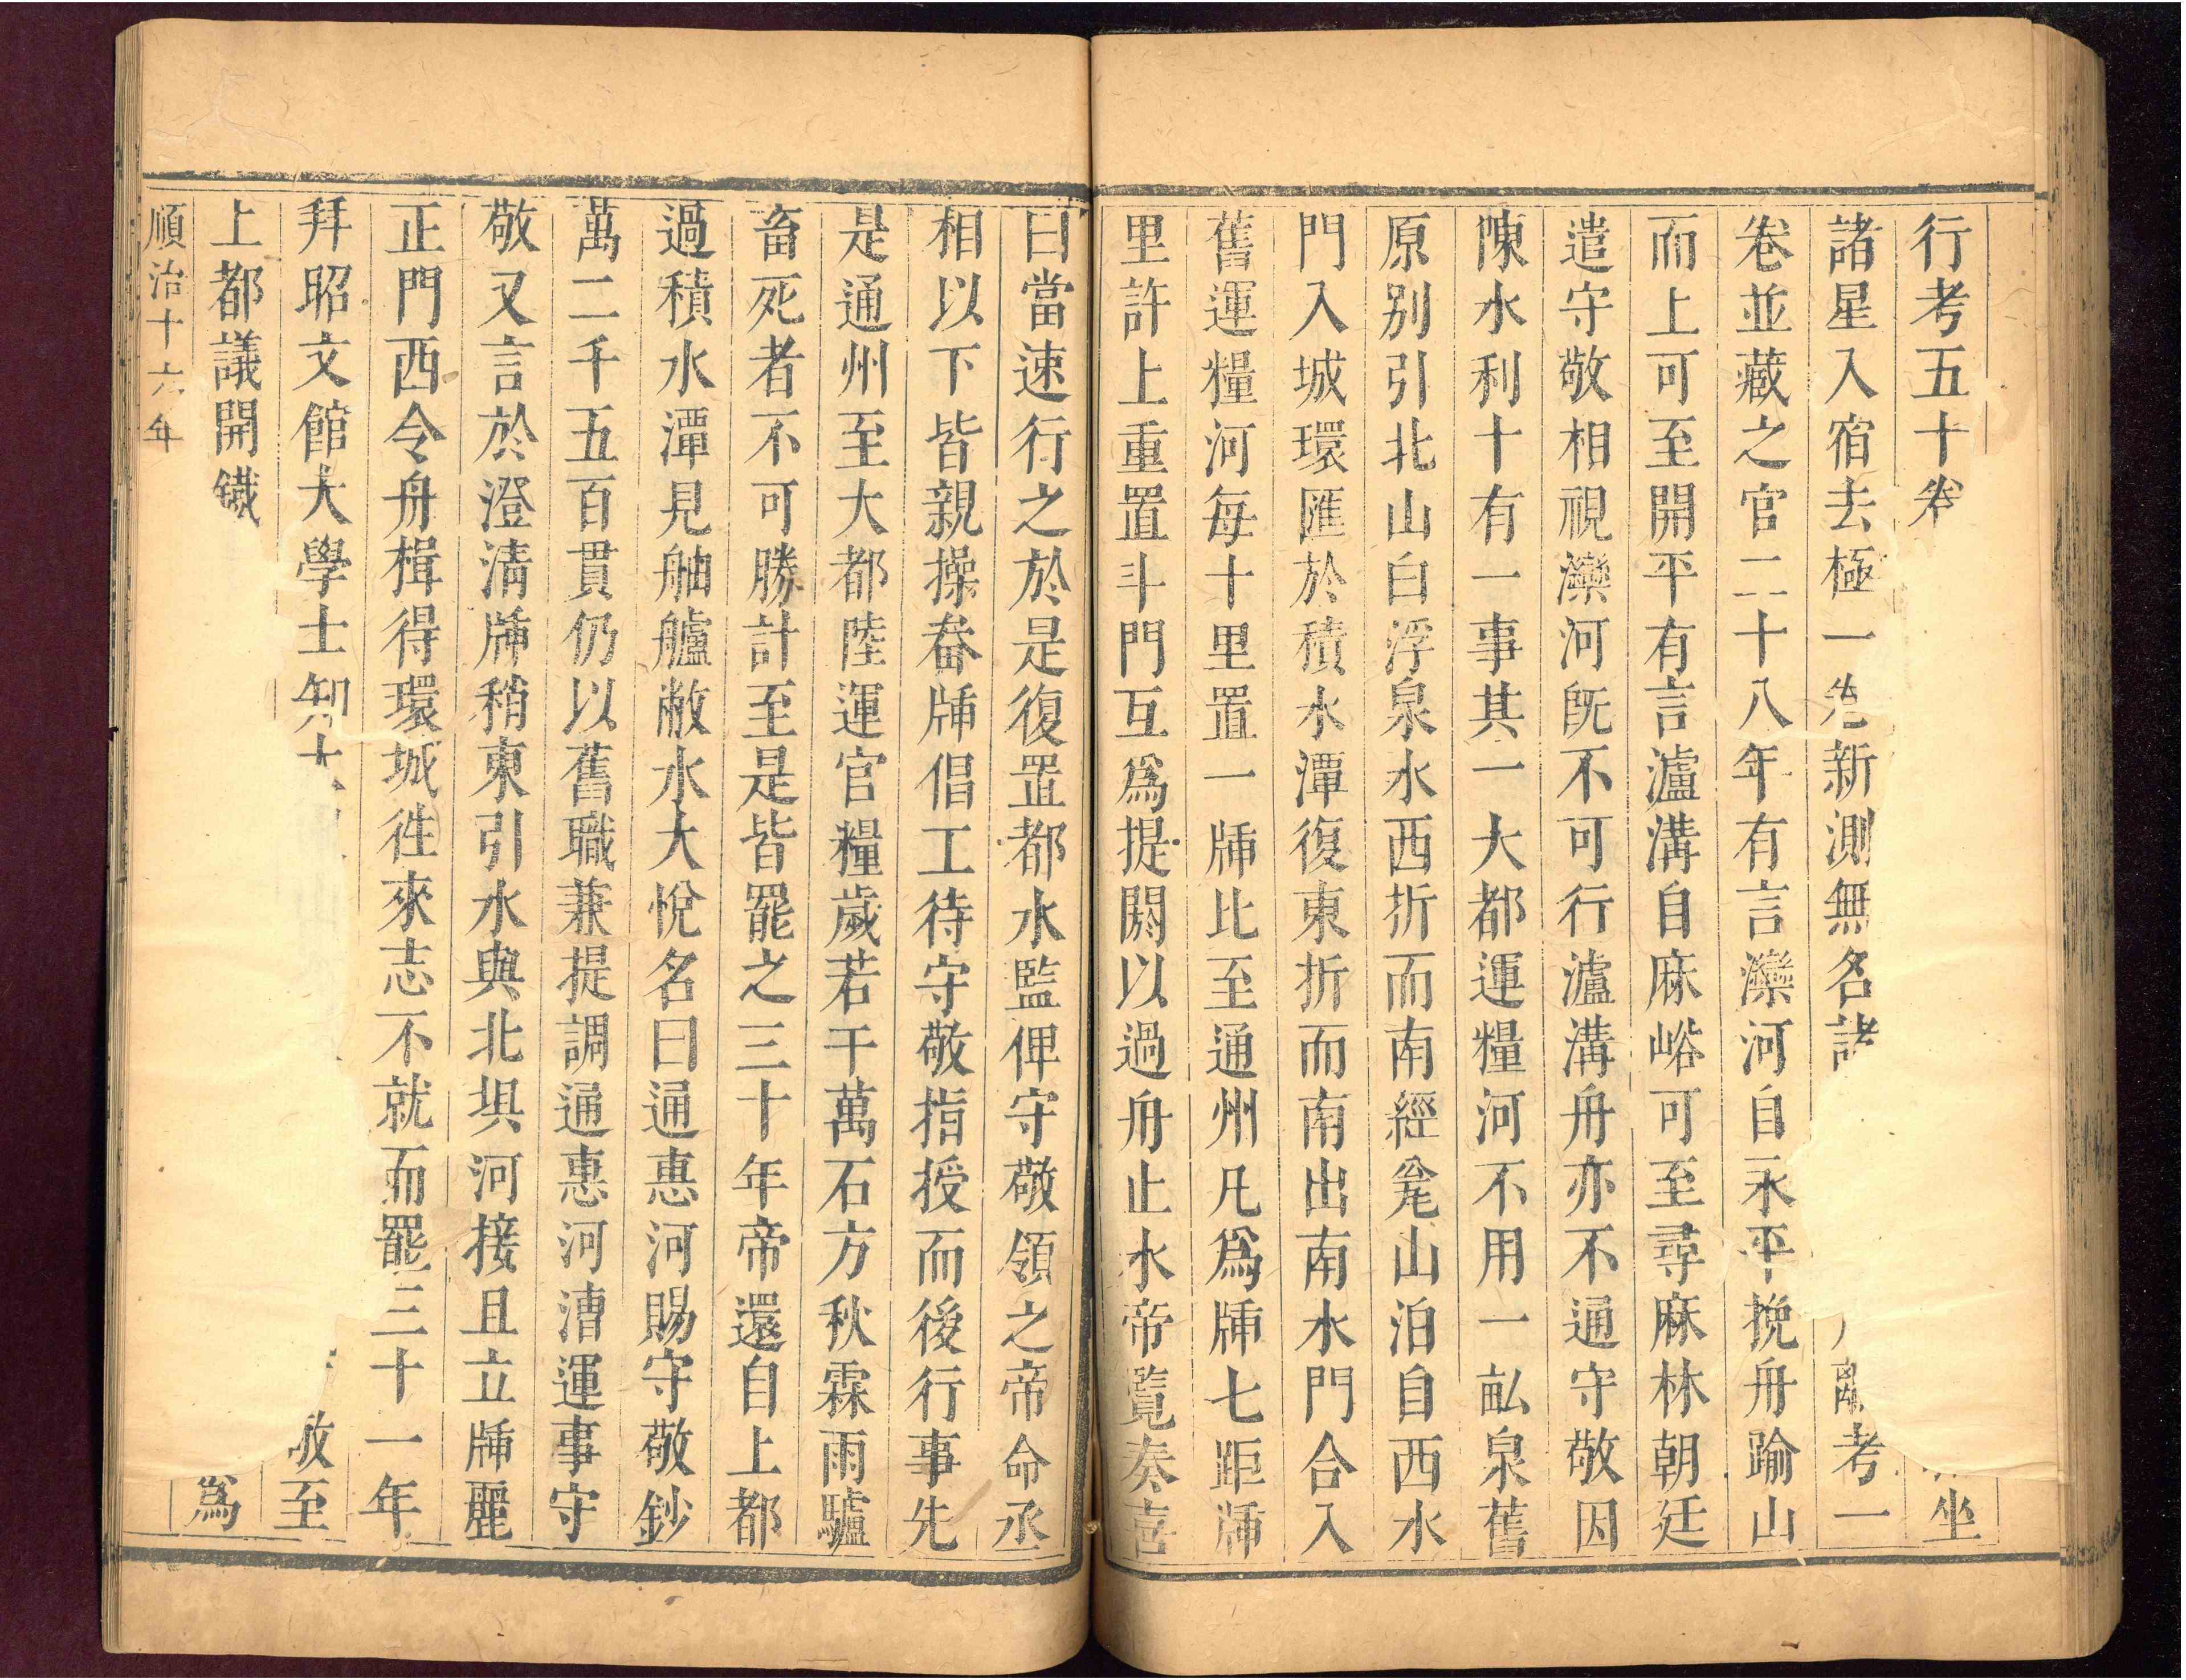 行考五十卷坐
諸星入宿去極一卷新測無名諸離考一
卷並藏之官二十八年有言灤河自永平挽舟踰山
而上可至開平有言瀘溝自麻峪可至尋麻林朝廷
遣守敬相視灤河旣不可行瀘溝舟亦不通守敬因
陳水利十有一事其一大都運糧河不用一畝泉舊
原别引北山白浮泉水西折而南經瓮山泊自西水
門入城環匯於積水潭復東折而南出南水門合入
舊運糧河每十里置一牐比至通州凡爲牐七距牐
里許上重置斗門互爲提閼以過舟止水帝覽奏喜
曰當速行之於是復置都水監俾守敬領之帝命丞
相以下皆親操畚牐倡工待守敬指授而後行事先
是通州至大都陸運官糧歲若干萬石方秋霖雨驢
畜死者不可勝計至是皆罷之三十年帝還自上都
過積水潭見舳艫敝水大悅名曰通惠河賜守敬鈔
萬二千五百貫仍以舊職兼提調通惠河漕運事守
敬又言於澄清牐稍東引水與北埧河接且立牐麗
正門西令舟楫得環城徃來志不就而罷三十一年
拜昭文館大學士知敬至
上都議開鐵爲
順治十六年